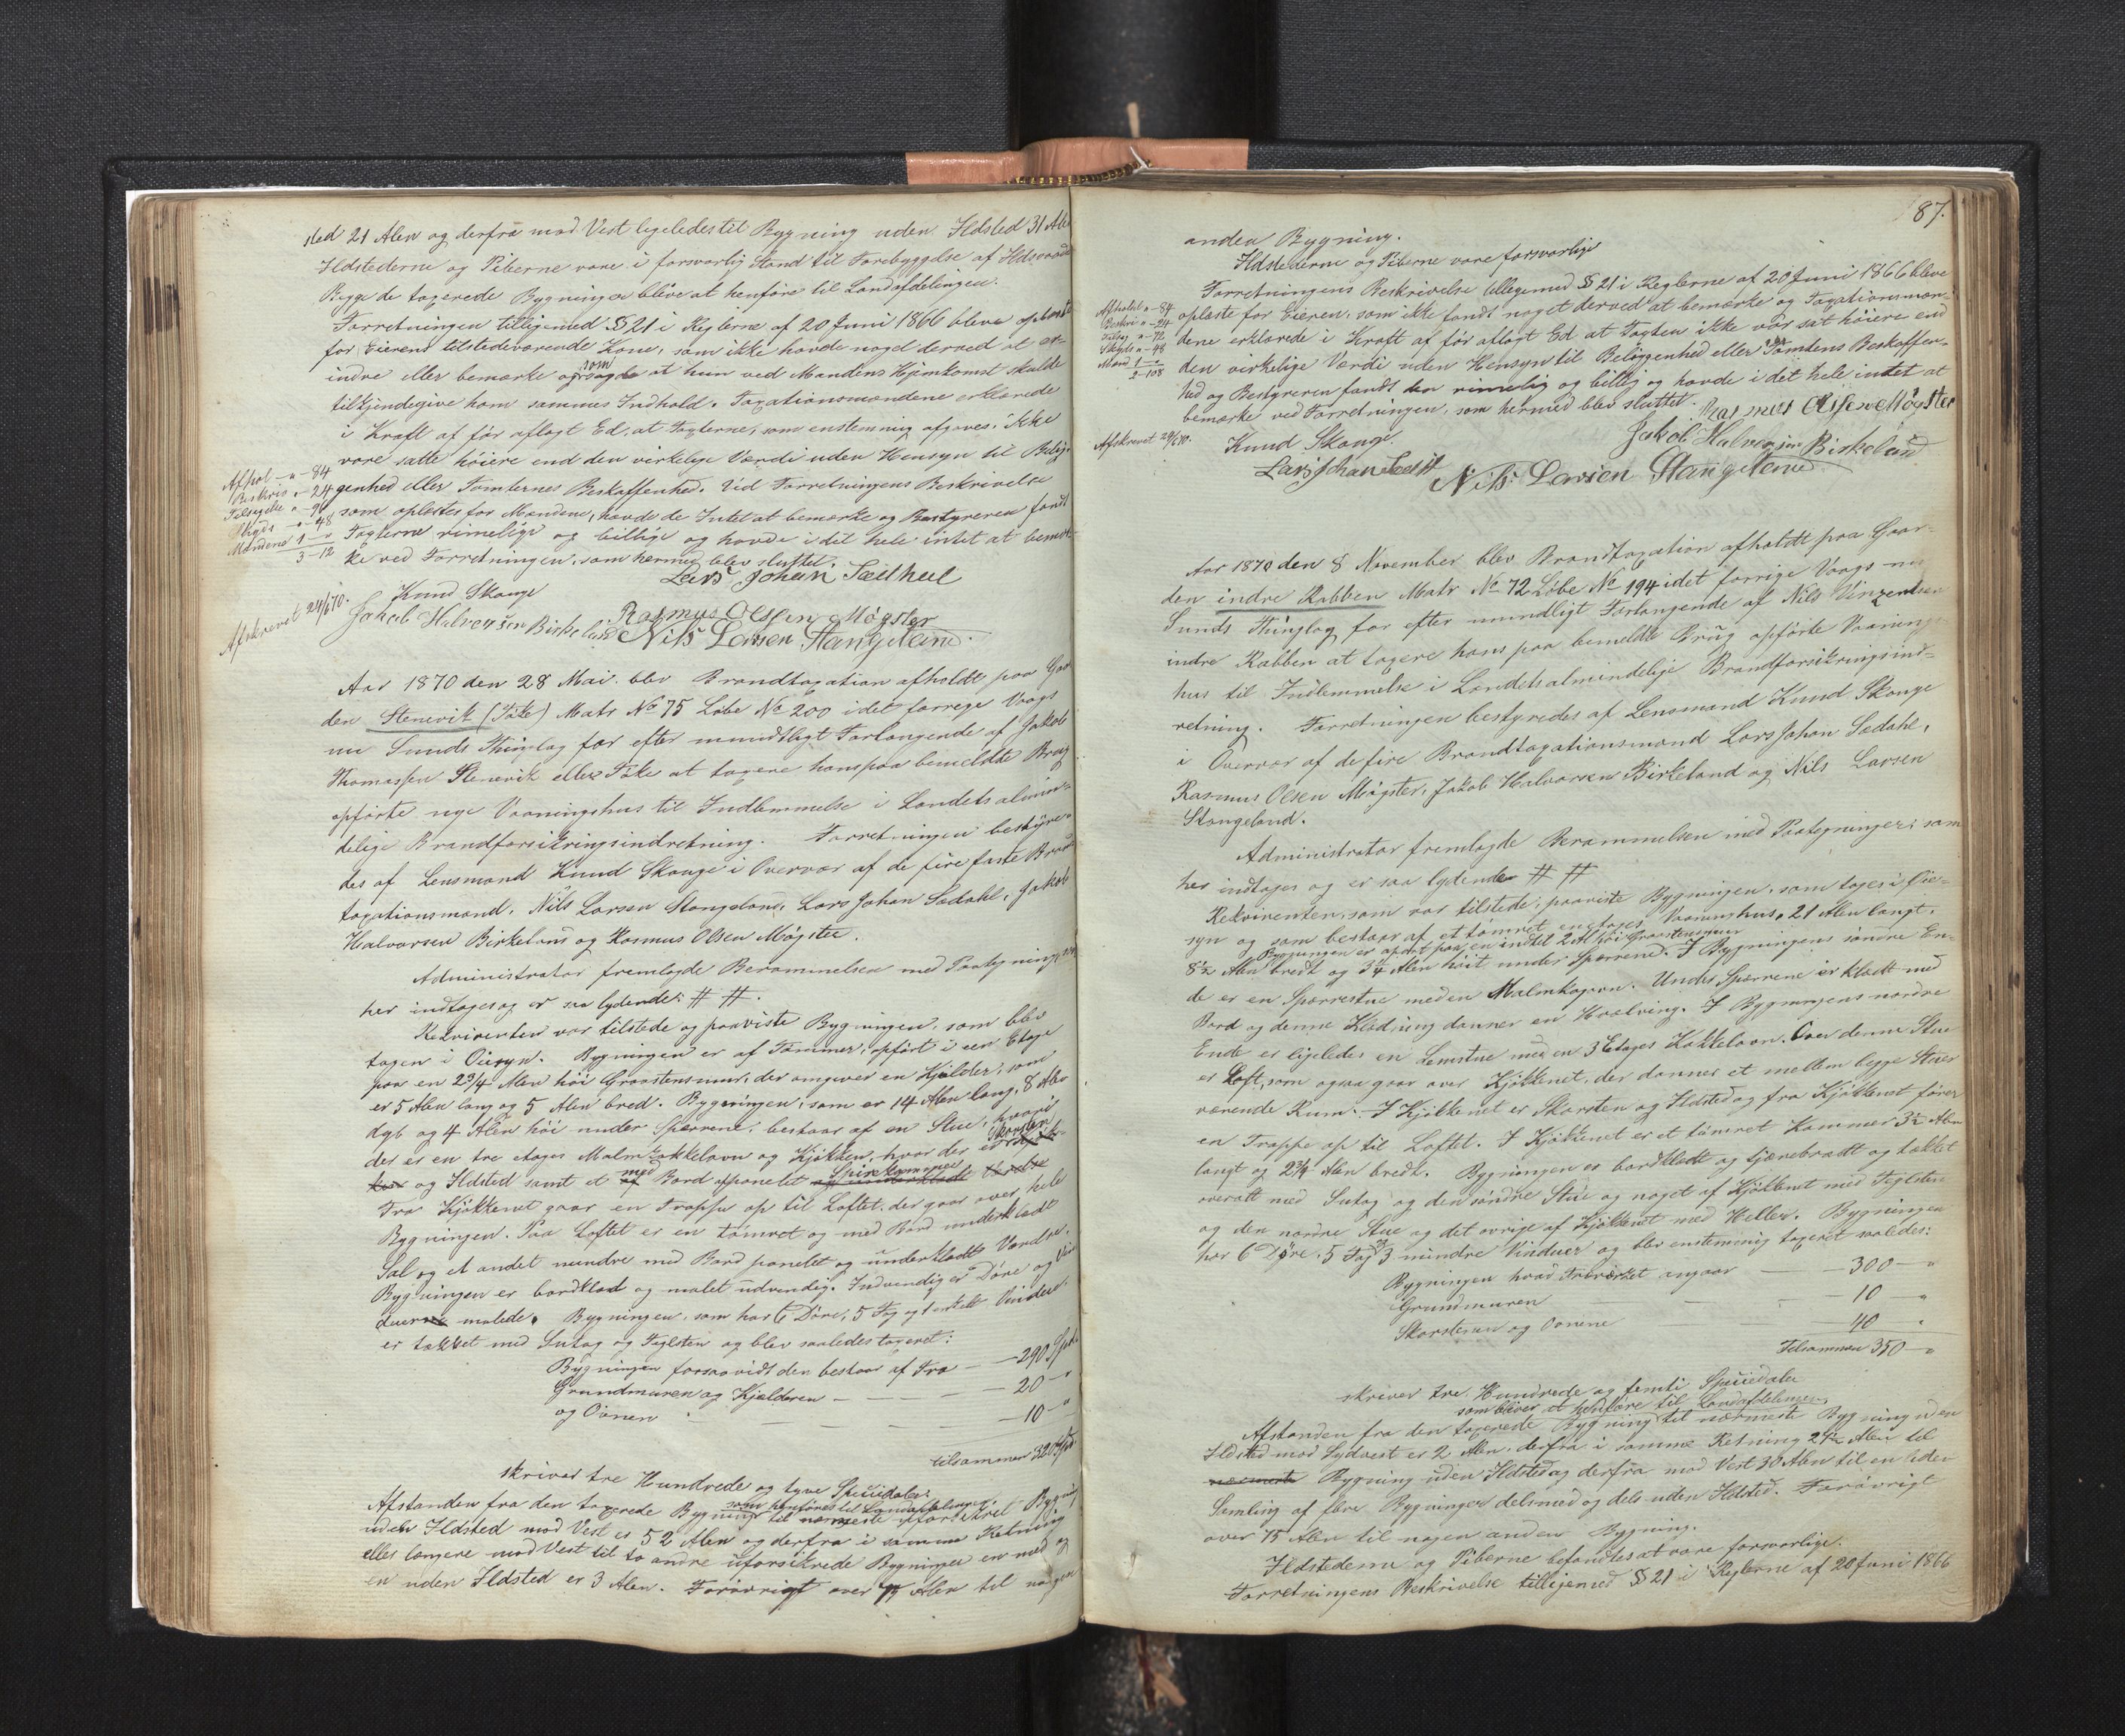 sted 21 Alen og derfra mod Vest ligeledes til Bygning uden Ildsted 31 Ale
Ildstederne og Piberne vare i forsvarlig Stand til Forebyggelse af Ildsvaade
Begge de taxerede Bygninger bleve at henføre til Landafdelingen.
Forretningen tilligemed §21 i Reglerne af 20 Juni 1866 bleve oplæste
for Eierens tilstedeværende Kone, som ikke havde noget derved at er-
indre eller bemærke og som sagde at hun ved Mandens Hjemkomst skulde
tilkjendegive ham sammes Indhold. Taxationsmændene erklærede
i Kraft af før aflagt Ed, at Taxterne, som enstemmig afgaves, ikke
vare satte høiere end den virkelige Værdi uden Hensyn til Belig-
genhed eller Tomternes Beskaffenhed. Ved Forretningens Beskrivelse
som oplæstes for Mændene, havde de Intet at bemærke og Bestyreren fandt
Taxterne rimelige og billige og havde i det hele intet at bemær-
ke ved Forretningen, som hermed blev sluttet.
Afhol — " - 84
Beskriv " - 24
Tilsigelse " - 96
Skyds — " - 48
Mændene 1 - "
3 - 12
Afskrevet 24/6 70.
Knud Skauge
Lars Johan
Jakob Halvorsen Birkeland
Rasmus Olsen Møgster
Nils Larsen Stangeland.
Aar 1870 den 28 Mai blev Brandtaxation afholdt paa Gaar
den Stenevik (Toke) Matr No 75 Løbe No 200 i det forrige Vaags
nu Sunds Thinglag for efter mundtligt Forlangende af Jakob
Thomassen Stenevik eller Toke at taxere hans paa bemeldte Brug
opførte nye Vaaningshus til Indlemmelse i Landets almin-
delige Brandforsikringsindretning. Forretningen bestyre-
des af Lensmand Knud Skauge i Overvær af de fire faste Brand
taxationsmænd, Nils Larsen Stangeland, Lars Johan Sædahl, Jakob
Halvorsen Birkeland og Rasmus Olsen Møgster.
Administrator fremlagde Berammelsen med Paategning, som
her indtages og er saa lydende: # #.
Rekvirenten var tilstede og paaviste Bygningen, som blev
tagen i Øiesyn. Bygningen er af Tømmer, opført i een Etage
paa en 2 3/4 Alen høi Graastensmur, der omgiver en Kjelder, som
er 5 Alen lang og 5 Alen bred. Bygningen, som er 14 Alen lang, 8 Alen
dyb og 4 Alen høi under Sperrene, bestaar af en Stue, hvori
der er en tre etages Malmkakkelovn og Kjøkken, hvor der er Skorsten
og Ildsted samt et med Bord afpanelet Spisekammer
Fra Kjøkkenet gaar en Trappe op til Loftet, der gaar over hele
Bygningen. Paa Loftet er en tømret og med Bord underklædt
Sal og et andet mindre med Bord panelet og underklædt Værelse.
Bygningen er bordklæd og malet udvendig. Indvendig er Døre og Vin
duer malede. Bygningen, som har 6 Døre, 5 Fag og 1 enkelt Vindue
er tækket med Sutag og Teglsten og blev saaledes taxeret:
Bygningen forsaavidt den bestaar af Træ — — 290 Spd.
Grundmuren og Kjælderen — — — — 20 — "
og Ovnen — — — — 10 — "
tilsammen 320 Spd.
skriver tre Hundrede og tyve Speciedaler.
som henføres til Landafdelingen
Afstanden fra den taxerede Bygning til nærmeste uforsikret Bygning
uden Ildsted mod Vest er 52 Alen og derfra i samme Retning
eller længere mod Vest til to andre uforsikrede Bygninger en med og
en uden Ildsted er 3 Alen. Forøvrigt over 75 Alen til nogen
87.
anden Bygning.
Ildstederne og Piberne vare forsvarlige
Forretningens Beskrivelse tilligemed §21 i Reglerne af 20 Juni 1866 bleve
oplæste for Eieren, som ikke fandt noget derved at bemærke og Taxationsmæn-
dene erklærede i Kraft af før aflagt Ed at Taxten ikke var sat høiere end
den virkelige Værdi uden Hensyn til Beliggenhed eller Tomtens Beskaffen-
hed og Bestyreren fandt den rimelig og billig og havde i det hele intet at
bemærke ved Forretningen, som hermed blev sluttet.
Afholdel " - 84
Beskriv " - 24
Tilsig " - 72
Skyds " - 48
Mænd 1 - "
2 - 108
Afskrevet 24/6 70.
Rasmus Olsen Møgster
Knud Skauge.
Jakob Halvorsen Birkeland
Lars Johan
Nils Larsen Stangeland
Aar 1870 den 8 November blev Brandtaxation afholdt paa Gaar-
den indre Rabben Matr No 72 Løbe No 194 i det forrige Vaags nu
Sunds Thinglag for efter mundtligt Forlangende af Nils Vinzentsen
indre Rabben at taxere hans paa bemeldte Brug opførte Vaanings-
hus til Indlemmelse i Landets almindelige Brandforsikringsind-
retning. Forretningen bestyredes af Lensmand Knud Skauge
i Overvær af de fire Brandtaxationsmænd Lars Johan Sedahl,
Rasmus Olsen Møgster, Jakob Halvorsen Birkeland og Nils Larsen
Stangeland.
Administrator fremlagde Berammelsen med Paategninger, som
her indtages og er saa lydende # #
Rekvirenten, som var tilstede, paaviste Bygningen, som toges i Øie-
syn og som bestaar af et tømret enetages Vaaningshus, 21 Alen langt,
Bygningen er opført paa en indtil 2 Al høi Graastensmuur
8 1/2 Alen bredt og 3 3/4 Alen høit under Sperrene. I Bygningens søndre En-
de er en Sperrestue med en Malmkagovn. Under Sperrene er klædt med
Bord og denne Klædning danner en Hvælving. I Bygningens nordre
Ende er ligeledes en Lemstue med en 3 Etages Kakkelovn. Over denne Stue
er Loft, som ogsaa gaar over Kjøkkenet, der danner et mellem begge Stuer
værende Rum. I Kjøkkenet er Skorsten og Ildsted og fra Kjøkkenet fører
en Trappe op til Loftet. I Kjøkkenet er et tømret Kammer 3 1/2 Alen
langt og 2 3/4 Alen bredt. Bygningen er bordklædt og tjærebrædt og tækket
overalt med Sutag og den søndre Stue og noget af Kjøkkenet med Teglsten
og den nordre Stue og det øvrige af Kjøkkenet med Heller. Bygningen
har 6 Døre, 5 Fag og 3 mindre Vinduer og blev enstemmig taxeret saaledes:
Bygningen hvad Træværket angaar — — 300 — "
Grundmuren — — — 10 — "
Skorstenen og Ovnene — — 40 "
Tilsammen 350 — "
skriver tre Hundrede og femti Speciedaler
som bliver at henføre til Landafdelingen,
Afstanden fra den taxerede Bygning til nærmeste Bygning uden
Ildsted mod Sydvest er 2 Alen, derfra i samme Retning 21 1/2 Alen til
nærmeste Bygning uden Ildsted og derfra mod Vest 30 Alen til en liden
Samling af flere Bygninger dels med og dels uden Ildsted. Forøvrigt
over 75 Alen til nogen anden Bygning.
Ildstederne og Piberne befandtes at være forsvarlige.
Forretningens Beskrivelse tilligemed §21 i Reglerne af 20 Juni 1866